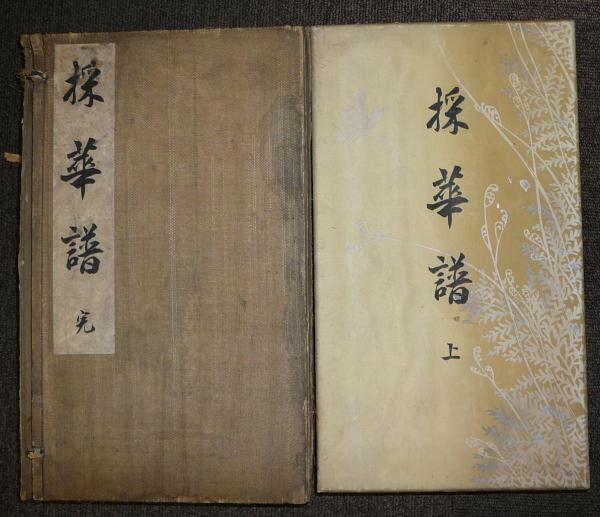 採華譜 完
採華譜 上